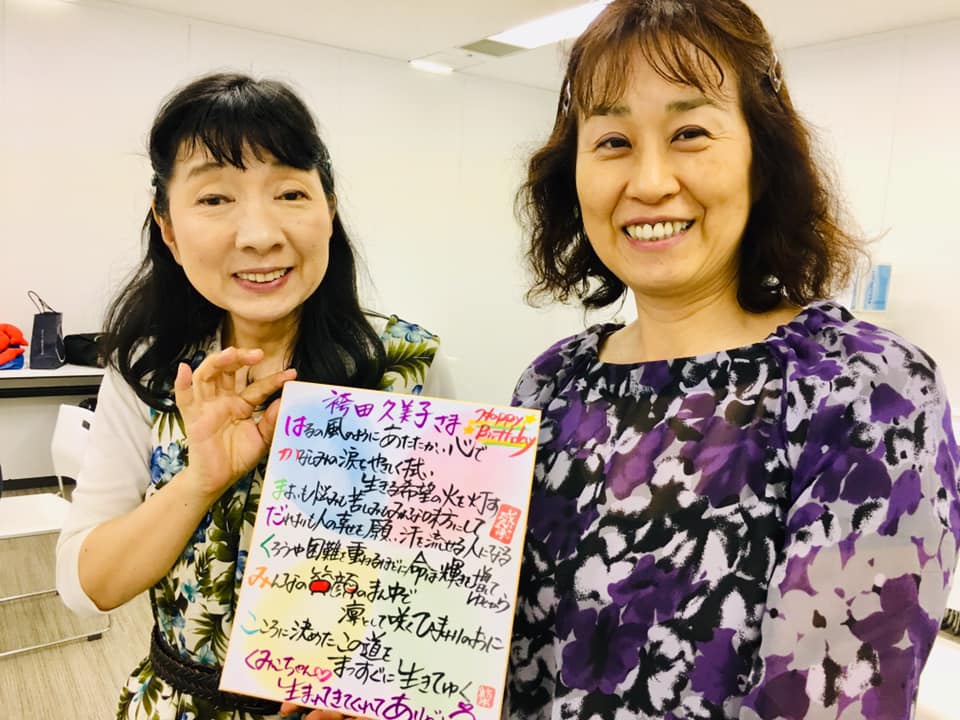 袴田久美子さま
Happy
Birthday
はるの風のようにあたたかい心で
かなしみの涙をやさしく拭い
生きる希望の火を灯す
まよいも悩みも苦しみもみんな味方にして
だれよりも人の幸せを願い、汗を流せる人になる
くろうや困難を重ねるほどに命は輝きを増して
ゆくから
みんなの笑顔のまん中で
凛として咲くひまわりのように
こころに決めたこの道を
まっすぐに生きてゆく
くみこちゃん♡
生まれてきてくれてありがとう